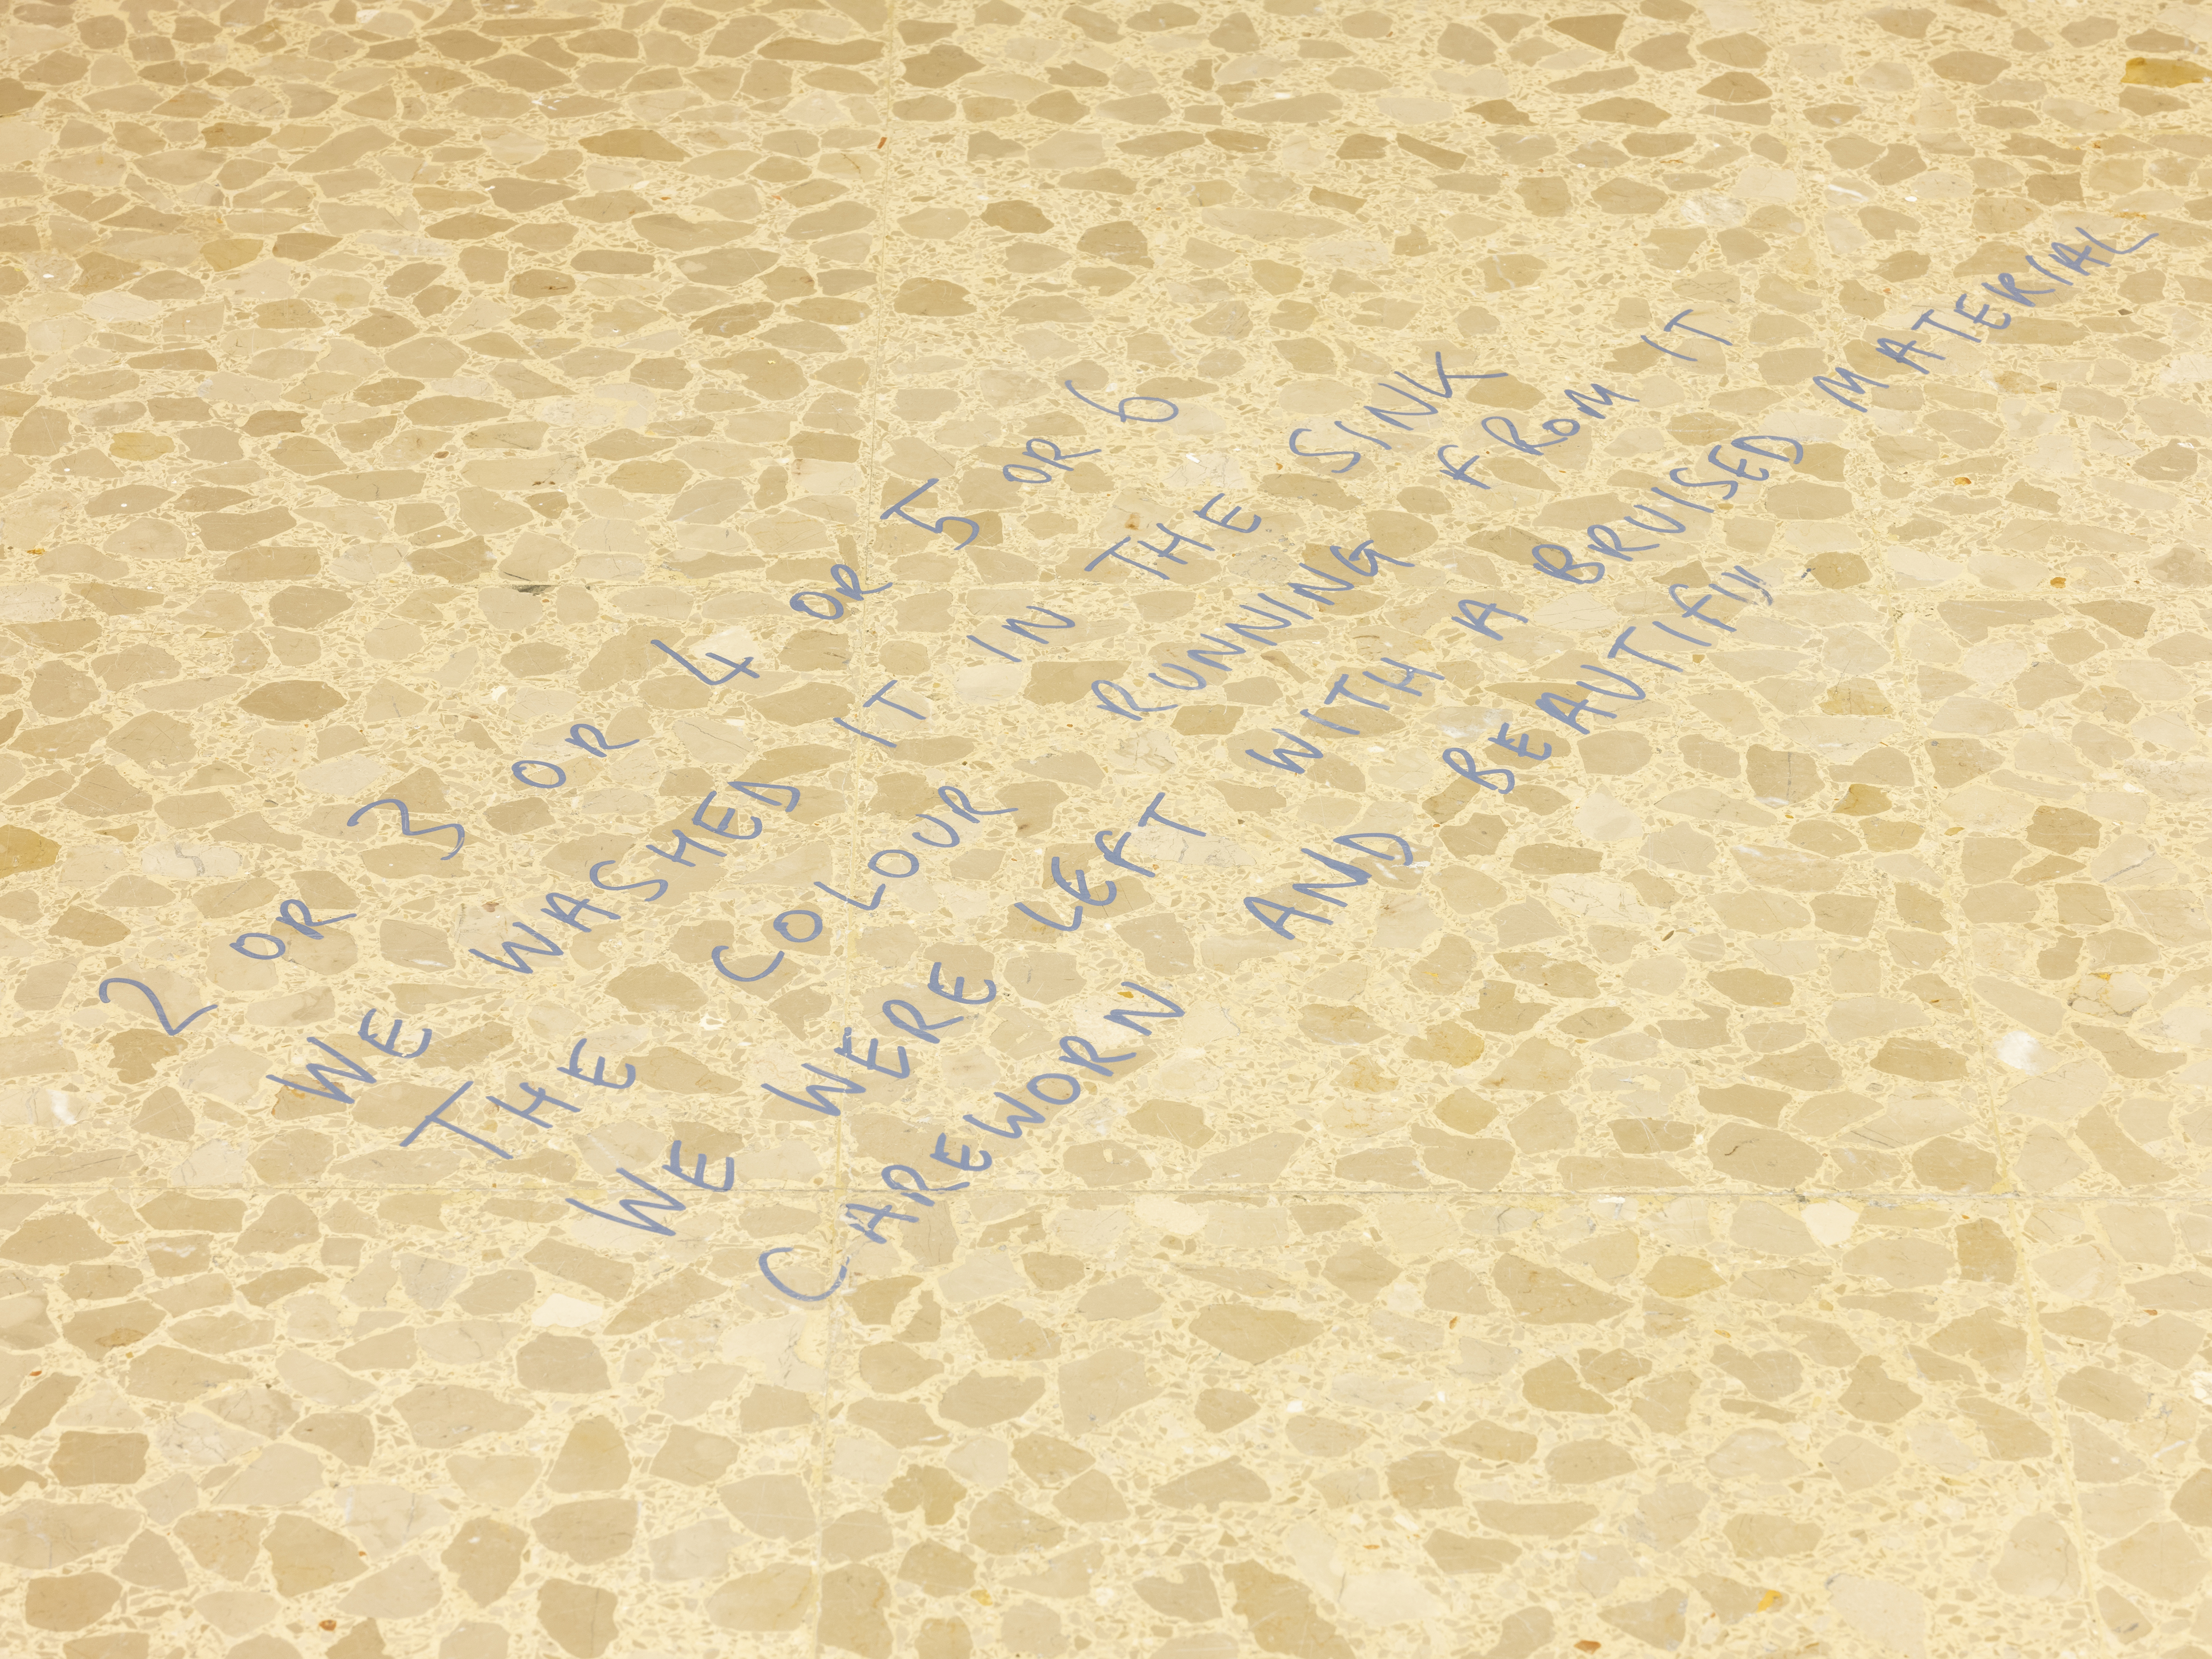 2 OR 3 OR 4 OR 5 OR 6
WE WASHED IT IN THE SINK
THE COLOUR RUNNING FROM IT
WE WERE LEFT WITH A BRUISED MATERIAL
CAREWORN AND